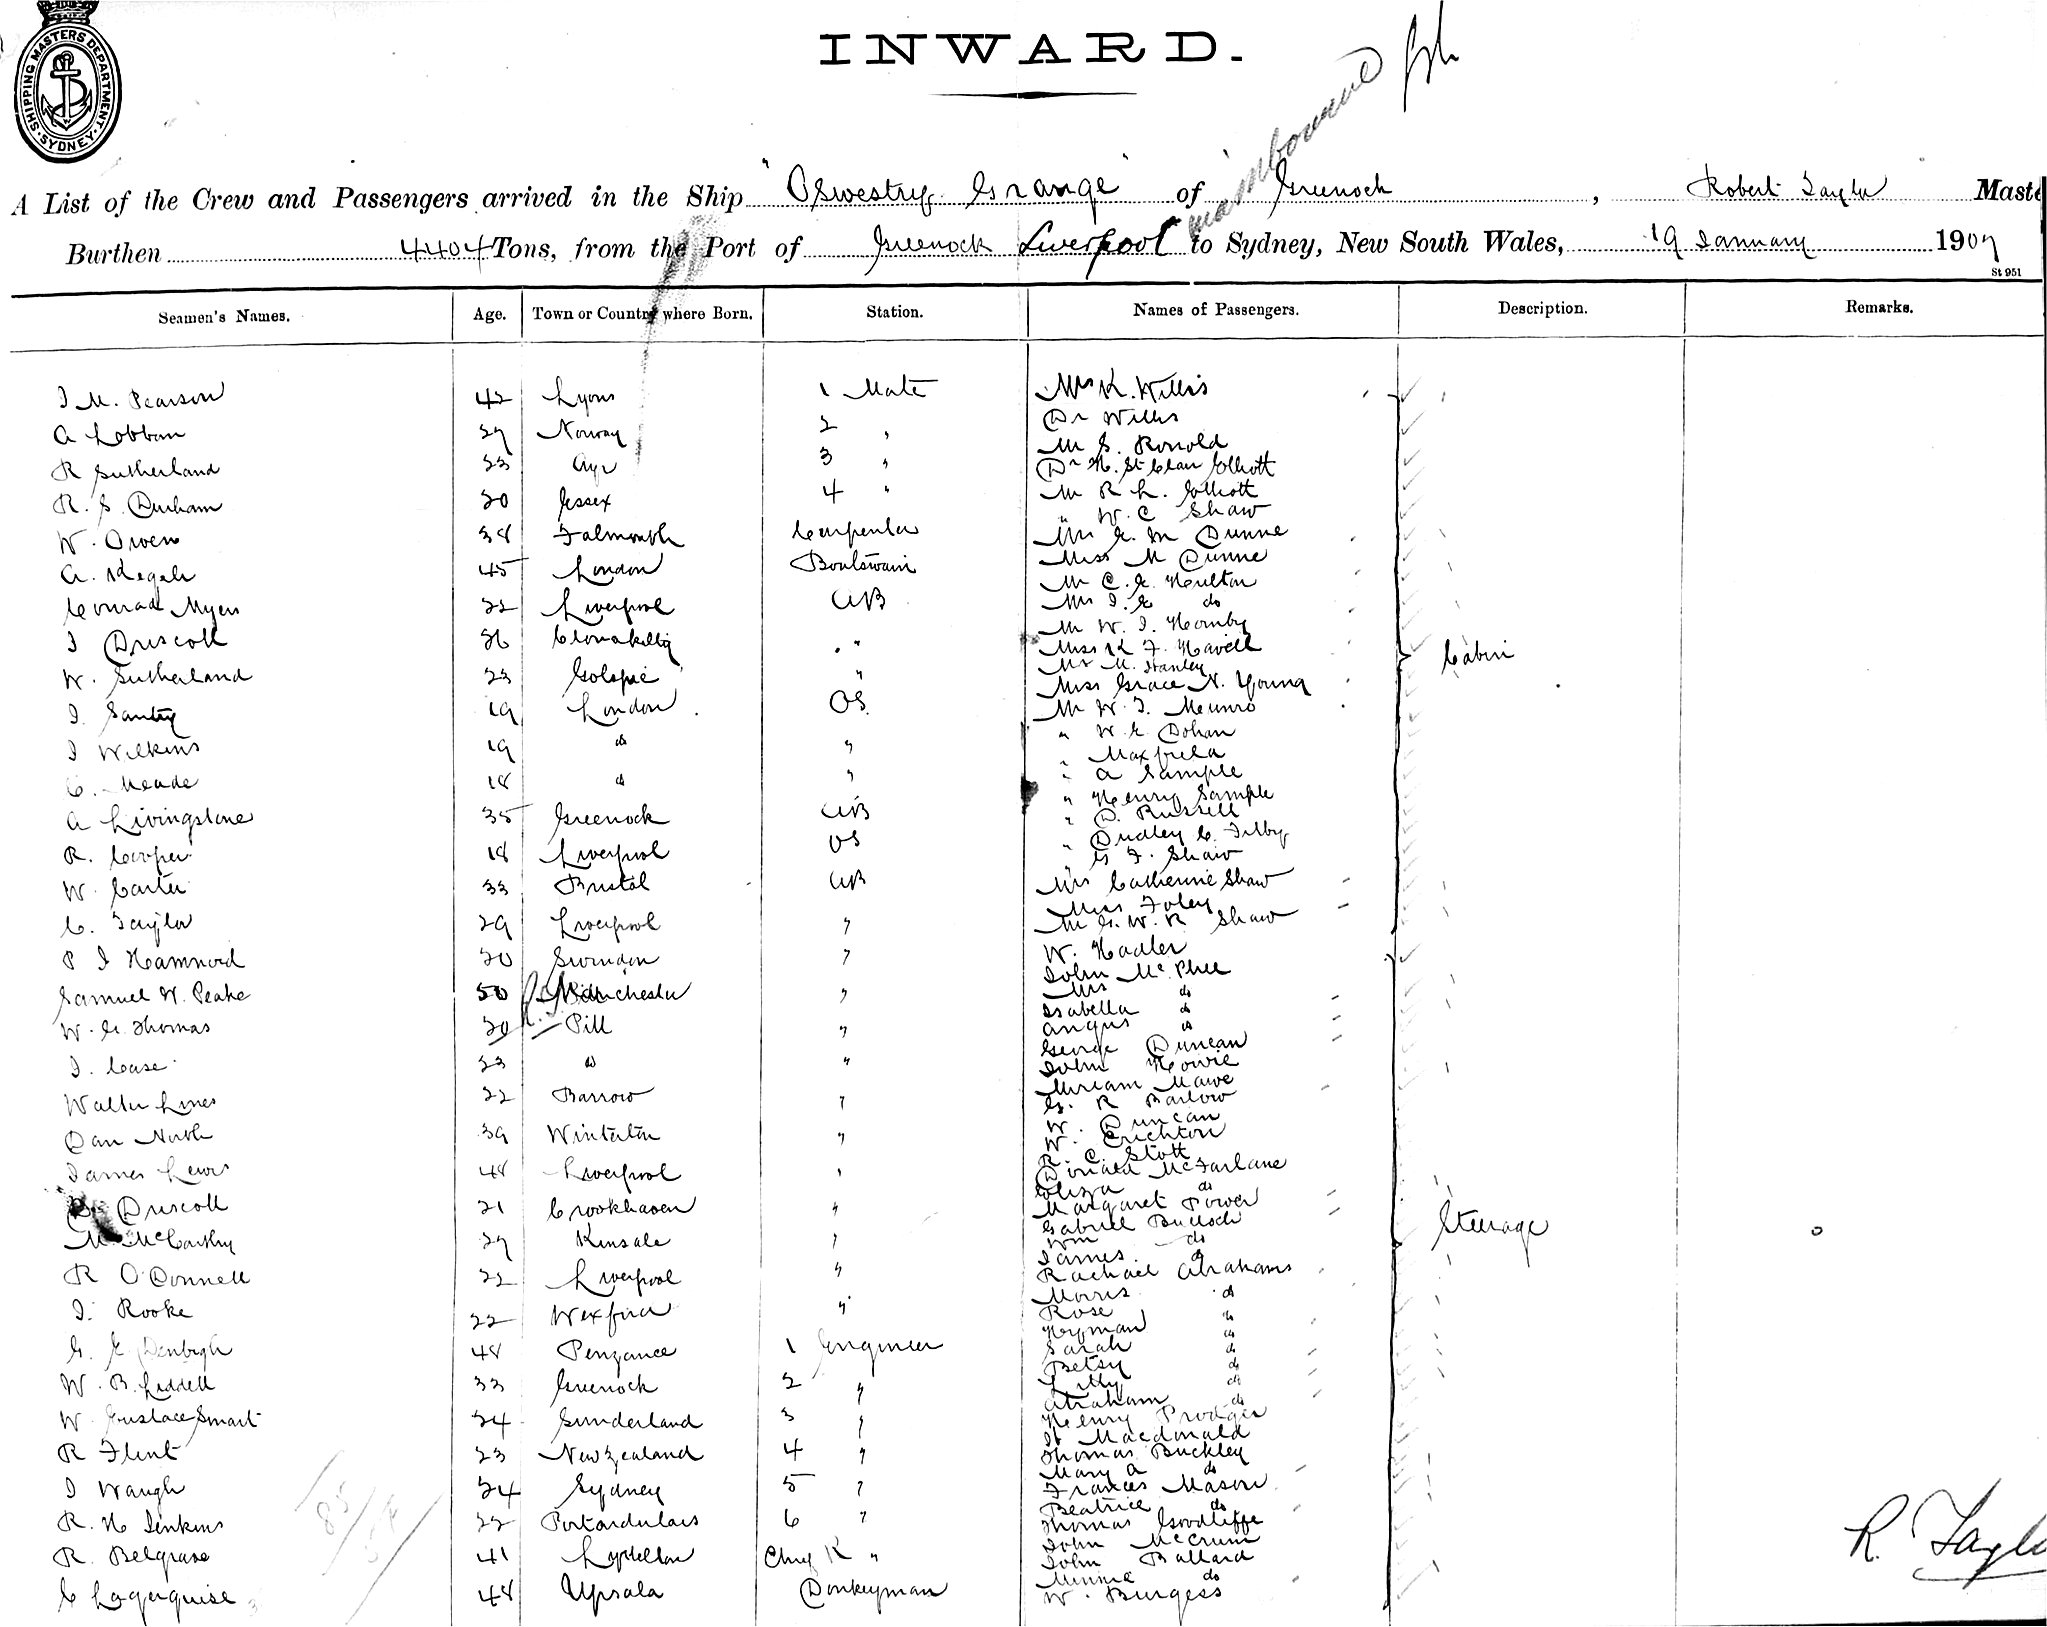 SHIPPING MASTERS DEPARTMENT
SYDNEY
INWARD.
A List of the Crew and Passengers arrived in the Ship "Oswestry Grange" of Greenock, Robert Taylor Maste
Burthen 4404 Tons, from the Port of Greenock Liverpool to Sydney, New South Wales, 19 January 1907
St 951
Seamen's Names. Age. Town or Country where Born. Station. Names of Passengers. Description. Remarks.
J M. Pearson 42 Lyons 1 Mate
A Lobban 29 Norway 2 "
R Sutherland 23 Ayr 3 "
R. S. Durham 30 Essex 4 "
W. Owen 38 Falmouth Carpenter
A. 45 London Boatswain
Conrad Myers 22 Liverpool AB
J Driscoll 26 Clonakilty "
W. Sutherland 23 Golspie "
J. Santry 19 London OS
J Wilkins 19 do "
C. Meade 18 do "
A Livingstone 35 Greenock AB
R. Cooper 18 Liverpool OS
W. Carter 33 Bristol AB
C. Taylor 29 Liverpool "
P J Hammond 20 Swindon "
Samuel W. Peake 50 Manchester "
W. G. Thomas 20 Pill "
J. Case 23 do "
Walter Lines 22 Barrow "
Dan North 39 Winterton "
James Lewis 48 Liverpool "
Driscoll 21 Crookhaven "
M. McCarthy 29 Kinsale "
R O'Donnell 22 Liverpool "
J. Rooke 22 Wexford "
G. E Denbigh 48 Penzance 1 Engineer
W. B. Liddell 33 Greenock 2 "
W Eustace Smart 24 Sunderland 3 "
R Flint 23 New Zealand 4 "
J Waugh 24 Sydney 5 "
R. H Jenkins 22 6 "
R. Belgrave 41 Lyttelton R "
C Lagerquise 48 Upsala Donkeyman
Mrs K. Willis
Dr Willis
Mr S. Ronold
Dr H. St Clair Elliott
Mr R L. Elliott
" W. C Shaw
Mrs E. M Dunne
Miss M Dunne
Mr C. E. Hulton
Mrs J. E do
Mr W. J. Hornby
Miss K F. Havell
Mr M. Hanley
Miss Grace N. Young
Mr W. J. Munro
" W. E. Dohan
" Maxfield
" A Sample
" Henry Sample
" D. Russell
" Dudley C. Filby
" G F. Shaw
Mrs Catherine Shaw
Miss Foley
Mr G. W. R Shaw
Cabin
W. Hadler
John McPhee
Mrs do
Isabella do
Angus do
George Duncan
John Howie
Miriam Mawe
G. R Barlow
W. Duncan
W. Crichton
R. C. Stott
Donald McFarlane
Eliza do
Margaret Power
Gabriel Bulloch
Wm do
James do
Rachael Abrahams
Morris do
Rose do
Hyman do
Sarah do
Betsy do
Lilly do
Abraham do
Henry Prodger
Macdonald
Thomas Buckley
Mary A do
Frances Mason
Beatrice do
Thomas Goodliffe
John McCrum
John Ballard
Minnie do
W. Burgess
Steerage
R. Taylo